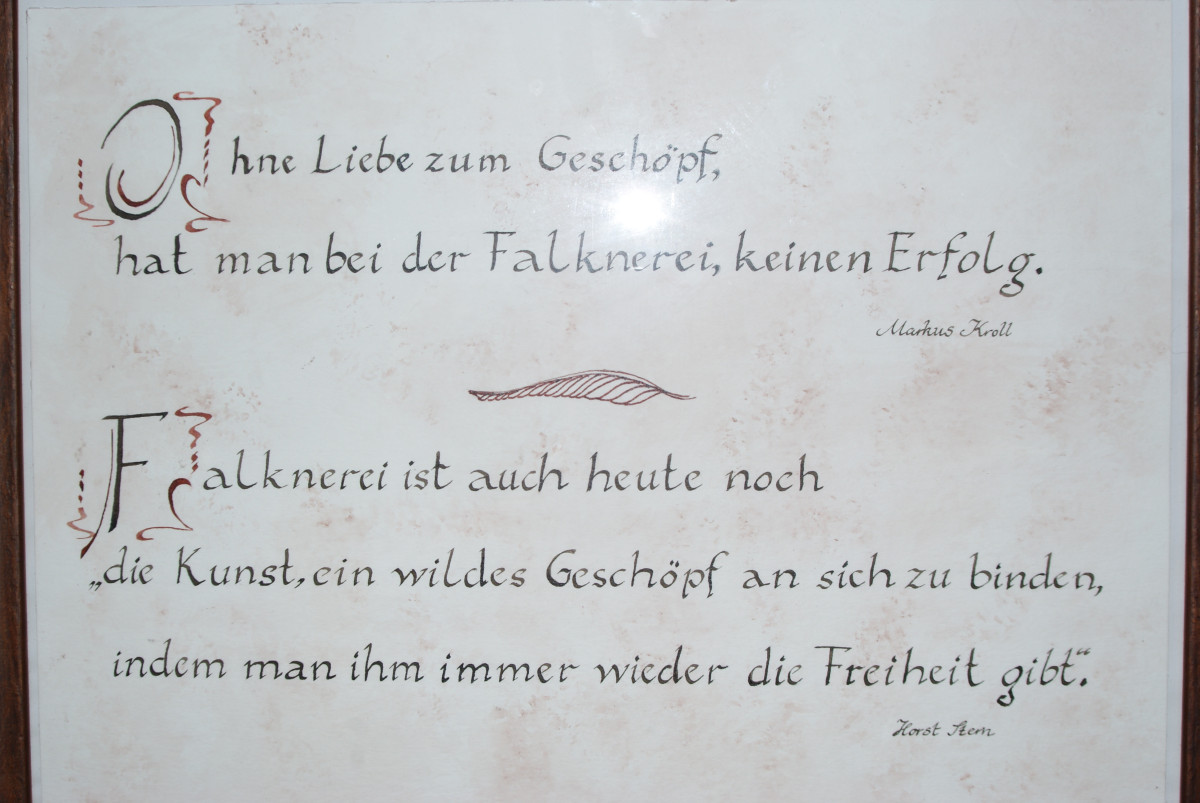 Ohne Liebe zum Geschöpf,
hat man bei der Falknerei, keinen Erfolg.
Markus Kroll
Falknerei ist auch heute noch
„die Kunst, ein wildes Geschöpf an sich zu binden,
indem man ihm immer wieder die Freiheit gibt“.
Horst Stern